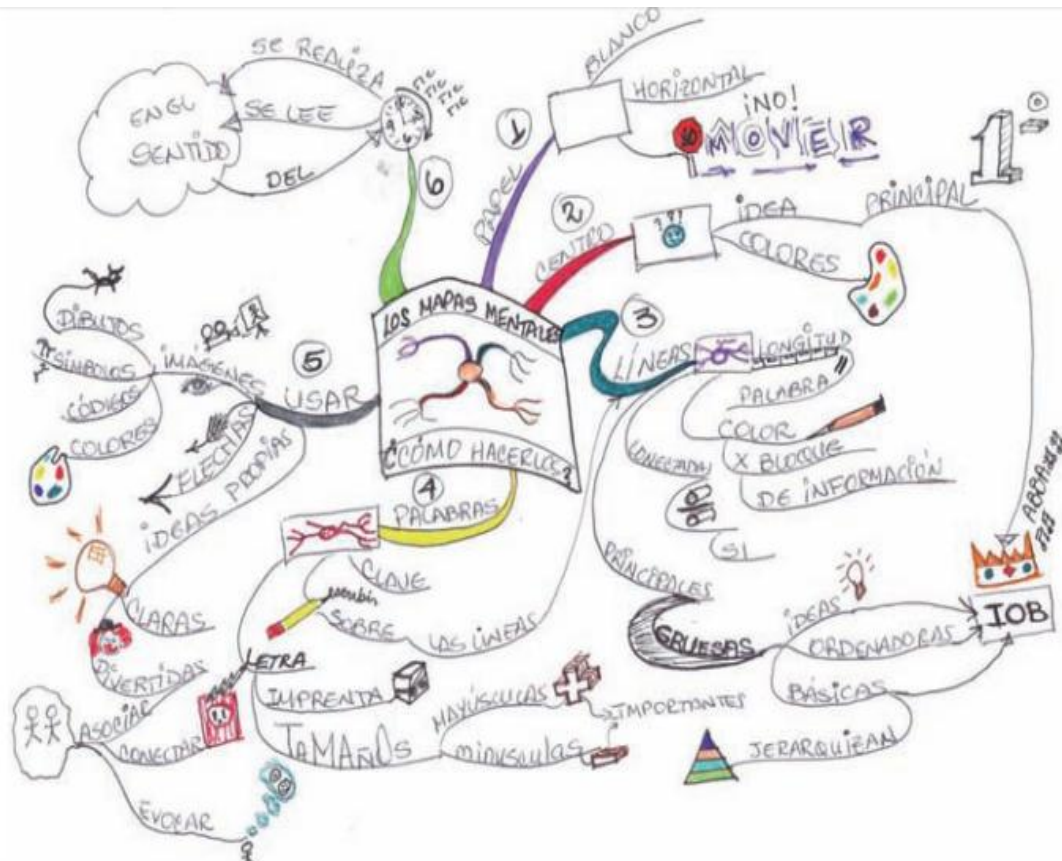 LOS MAPAS MENTALES
¿CÓMO HACERLOS?
1
PAPEL
BLANCO
HORIZONTAL
¡NO!
MOVER
2
CENTRO
IDEA
PRINCIPAL
1º
COLORES
3
LÍNEAS
LONGITUD
PALABRA
COLOR
X BLOQUE
DE INFORMACIÓN
CONECTADAS
SI
PRINCIPALES
GRUESAS
IDEAS
ORDENADORAS
BÁSICAS
JERARQUIZAN
IOB
4
PALABRAS
CLAVE
escribir
SOBRE
LAS LÍNEAS
LETRA
IMPRENTA
TAMAÑOS
MAYÚSCULAS
minúsculas
IMPORTANTES
5
USAR
IMÁGENES
DIBUJOS
SÍMBOLOS
CÓDIGOS
COLORES
FLECHAS
IDEAS PROPIAS
CLARAS
DIVERTIDAS
ASOCIAR
CONECTAR
EVOCAR
6
TIC
TIC
TIC
TIC
SE REALIZA
SE LEE
EN EL
SENTIDO
DEL